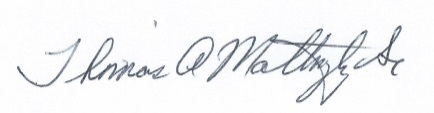 Thomas A Mattingly Sr